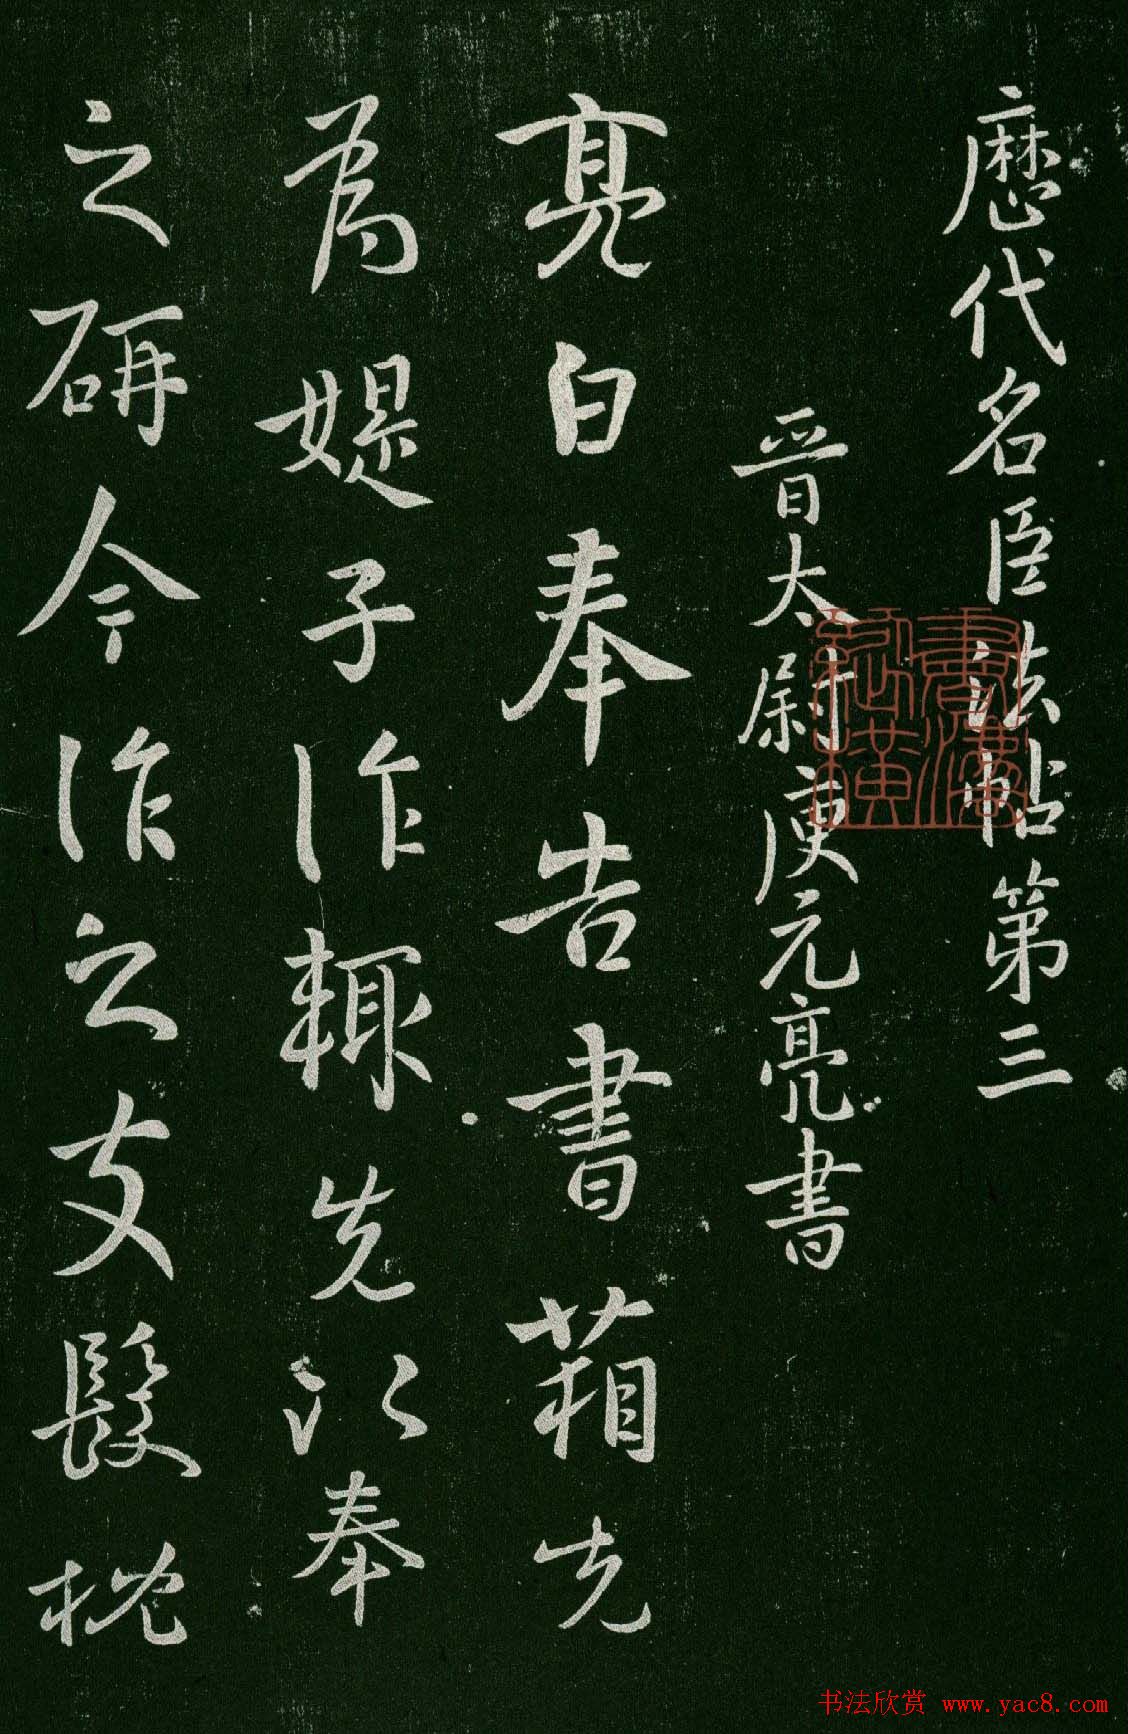 歷代名臣法帖第三
晉太尉庾元亮書
亮白奉告書葙先
為媞子作輙先以奉
之研今作之支髮枕
书法欣赏 www.yac8.com